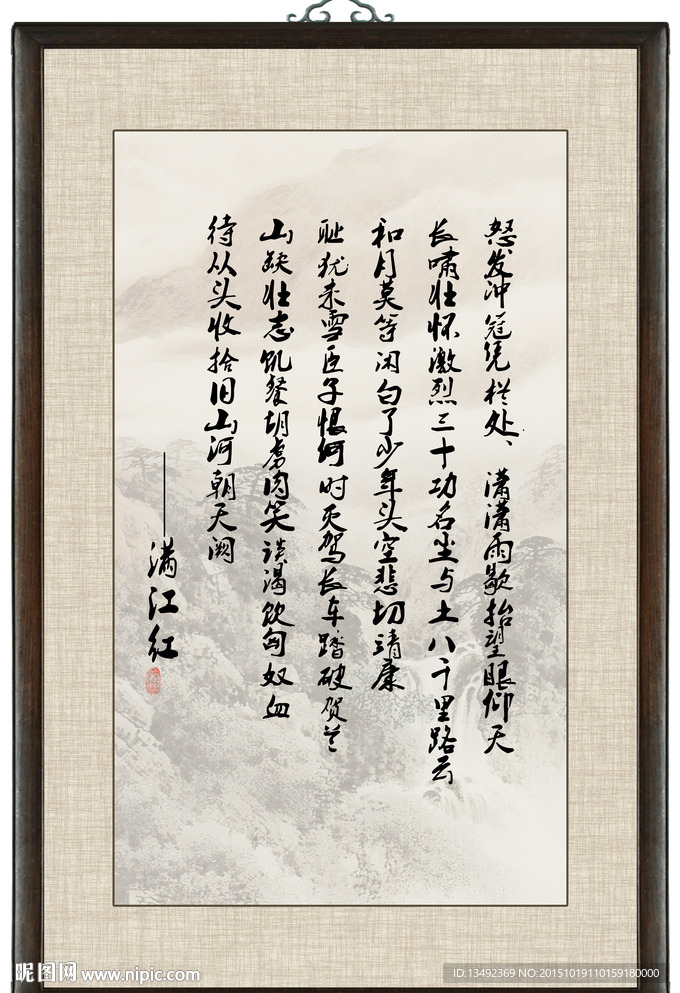 怒发冲冠凭栏处、潇潇雨歇抬望眼仰天
长啸壮怀激烈三十功名尘与土八千里路云
和月莫等闲白了少年头空悲切靖康
耻犹未雪臣子恨何时灭驾长车踏破贺兰
山缺壮志饥餐胡虏肉笑谈渴饮匈奴血
待从头收拾旧山河朝天阙
——满江红
昵图网 www.nipic.com
ID:13492369 NO:20151019110159180000